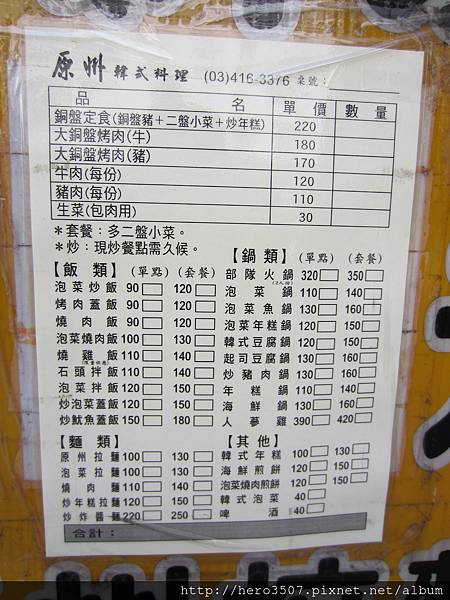 原州 韓式料理 (03)416-3376 桌號:
品 名 單 價 數 量
銅盤定食(銅盤豬+二盤小菜+炒年糕) 220
大銅盤烤肉(牛) 180
大銅盤烤肉(豬) 170
牛肉(每份) 120
豬肉(每份) 110
生菜(包肉用) 30
*套餐:多二盤小菜。
*炒:現炒餐點需久候。
【飯 類】(單點) (套餐)
泡菜炒飯 90 120
烤肉蓋飯 90 120
燒肉飯 90 120
泡菜燒肉飯 100 130
燒雞飯 110 140
石頭拌飯 110 140
泡菜拌飯 120 150
炒泡菜蓋飯 120 150
炒魷魚蓋飯 150 180
【麵 類】
原州拉麵 100 130
泡菜拉麵 100 130
燒肉麵 110 140
炒年糕拉麵 120 150
炒炸醬麵 220 250
【鍋 類】(單點) (套餐)
部隊火鍋 320 350
(2人份)
泡菜鍋 110 140
泡菜魚鍋 130 160
泡菜年糕鍋 120 150
韓式豆腐鍋 120 150
起司豆腐鍋 130 160
炒豬肉鍋 130 160
年糕鍋 110 140
海鮮鍋 130 160
人蔘雞 390 420
【其 他】
韓式年糕 100 130
海鮮煎餅 120 150
泡菜燒肉煎餅 120 150
韓式泡菜 40
啤酒 40
合計:
http://hero3507.pixnet.net/album